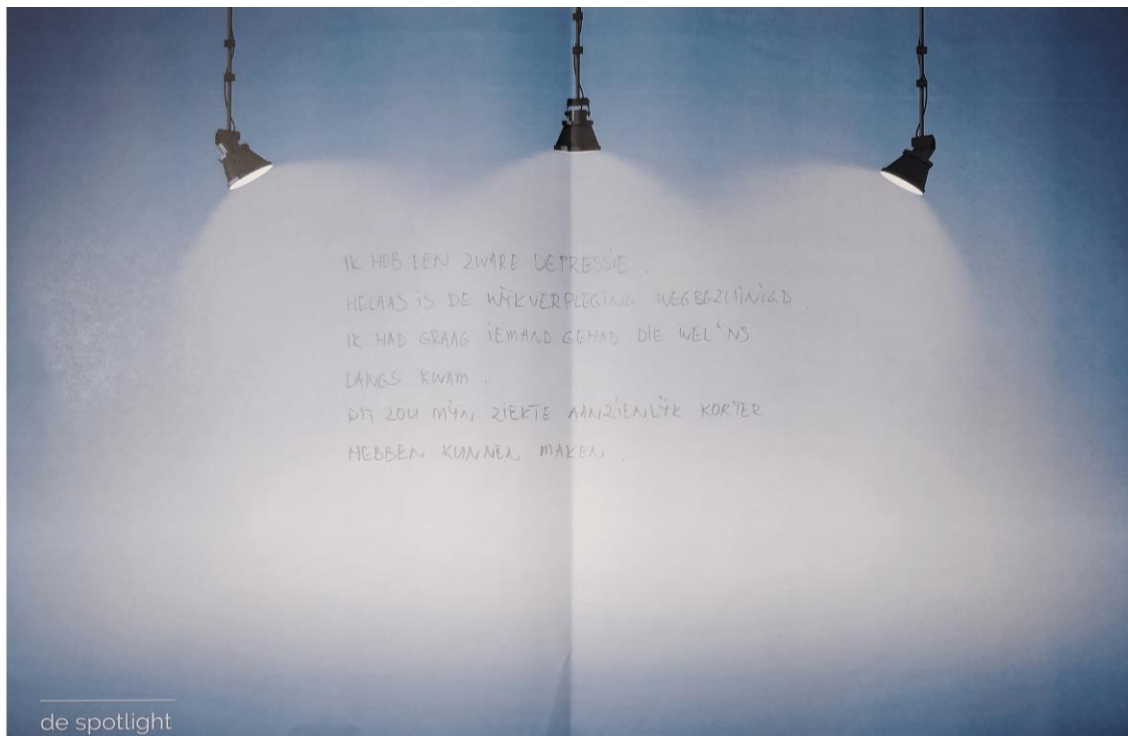 IK HEB EEN ZWARE DEPRESSIE.
HELAAS IS DE WIJKVERPLEGING WEGBEZUINIGD.
IK HAD GRAAG IEMAND GEHAD DIE WEL 'NS
LANGS KWAM.
DIT ZOU MIJN ZIEKTE AANZIENLIJK KORTER
HEBBEN KUNNEN MAKEN.
de spotlight